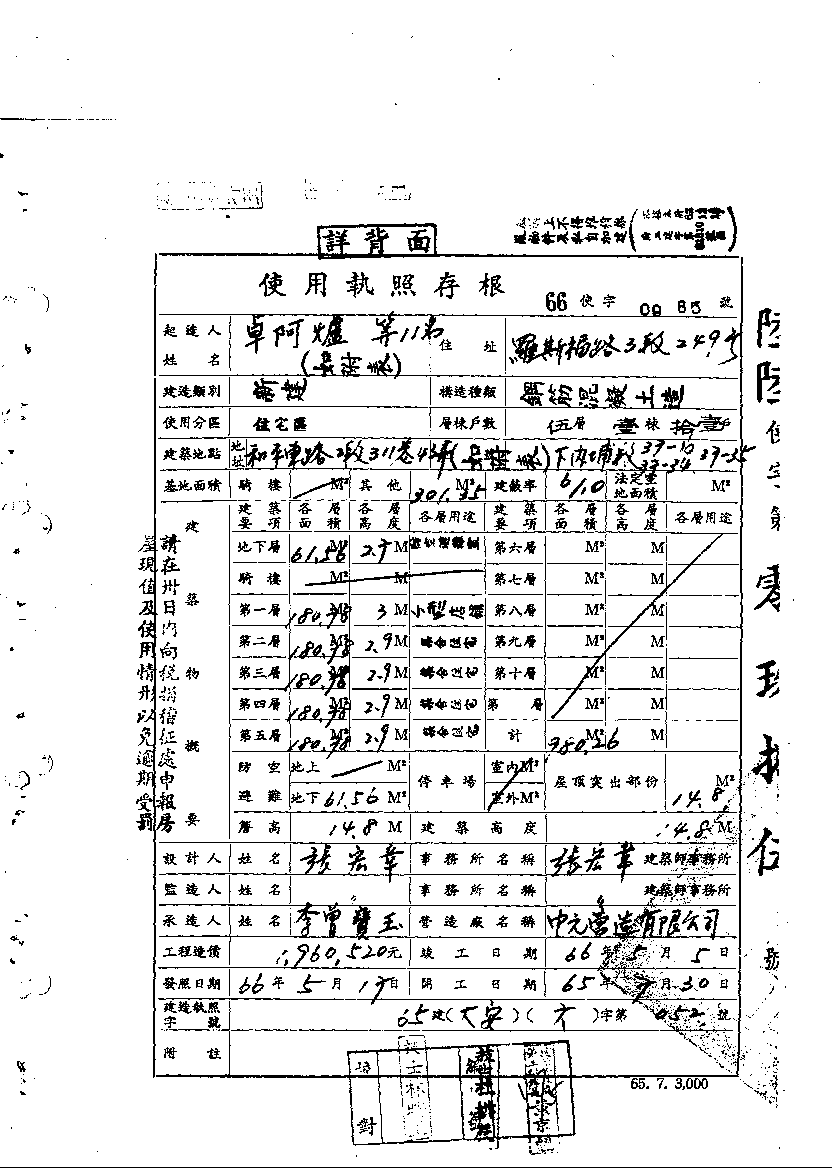 詳背面
使用執照存根
66 使字 0985 號
起造人姓名 卓阿爐 等11名 住址 羅斯福路3段249号
建造類別 新建 構造種類 鋼筋混凝土造
使用分區 住宅區 層棟戶數 伍層 壹棟 拾壹戶
建築地點 地址 和平東路2段311巷43號 下內埔段 37-16 37-34 37-35
基地面積 騎樓 M² 其他 301.35 M² 建蔽率 61.0 法定空地面積 M²
建築物概要 建築要項 各層面積 各層高度 各層用途 建築要項 各層面積 各層高度 各層用途
地下層 61.56 M² 2.7 M 第六層 M² M
騎樓 M² 第七層 M² M
第一層 180.98 M² 3 M 小型店舖 第八層 M² M
第二層 180.98 M² 2.9 M 集合住宅 第九層 M² M
第三層 180.98 M² 2.9 M 集合住宅 第十層 M² M
第四層 180.98 M² 2.9 M 集合住宅 第 層 M² M
第五層 180.98 M² 2.9 M 集合住宅 計 980.26 M² M
防空避難 地上 M² 停車場 室內M² 屋頂突出部份 14.8 M²
地下 61.56 M² 室外M²
簷高 14.8 M 建築高度 14.8 M
設計人 姓名 張宏章 事務所名稱 張宏章 建築師事務所
監造人 姓名 事務所名稱 建築師事務所
承造人 姓名 李曾寶玉 營造廠名稱 中元營造有限公司
工程造價 1,960,520元 竣工日期 66年5月5日
發照日期 66年5月17日 開工日期 65年7月30日
建造執照字號 65建(大安)(六)字第052號
附註
65. 7. 3,000
請在卅日內向稅捐稽征處申報房
屋現值及使用情形以免逾期受罰
校對